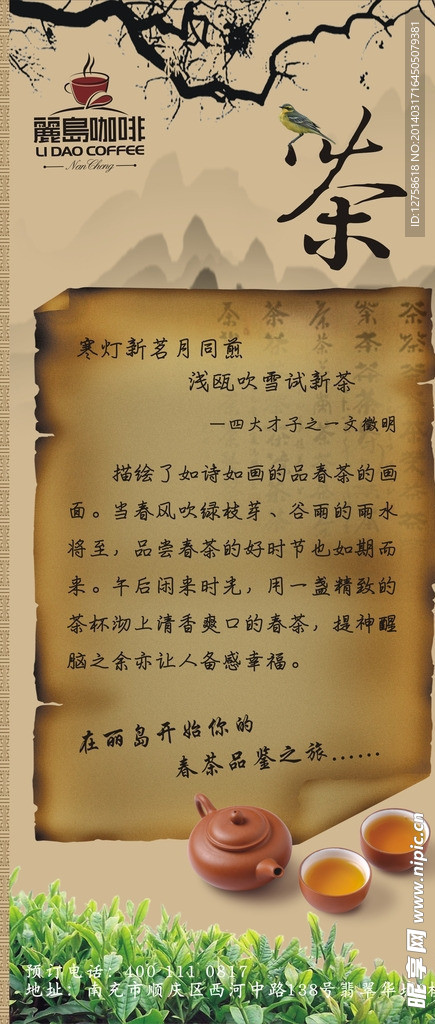 麗島咖啡
LI DAO COFFEE
NanChong
茶
寒灯新茗月同煎
浅瓯吹雪试新茶
—四大才子之一文徵明
描绘了如诗如画的品春茶的画
面。当春风吹绿枝芽、谷雨的雨水
将至，品尝春茶的好时节也如期而
来。午后闲来时光，用一盏精致的
茶杯沏上清香爽口的春茶，提神醒
脑之余亦让人备感幸福。
在丽岛开始你的
春茶品鉴之旅......
预订电话：400 111 0817
地址：南充市顺庆区西河中路138号翡翠华
ID:12758618 NO:20140317164505079381
昵享网 www.nipic.cn